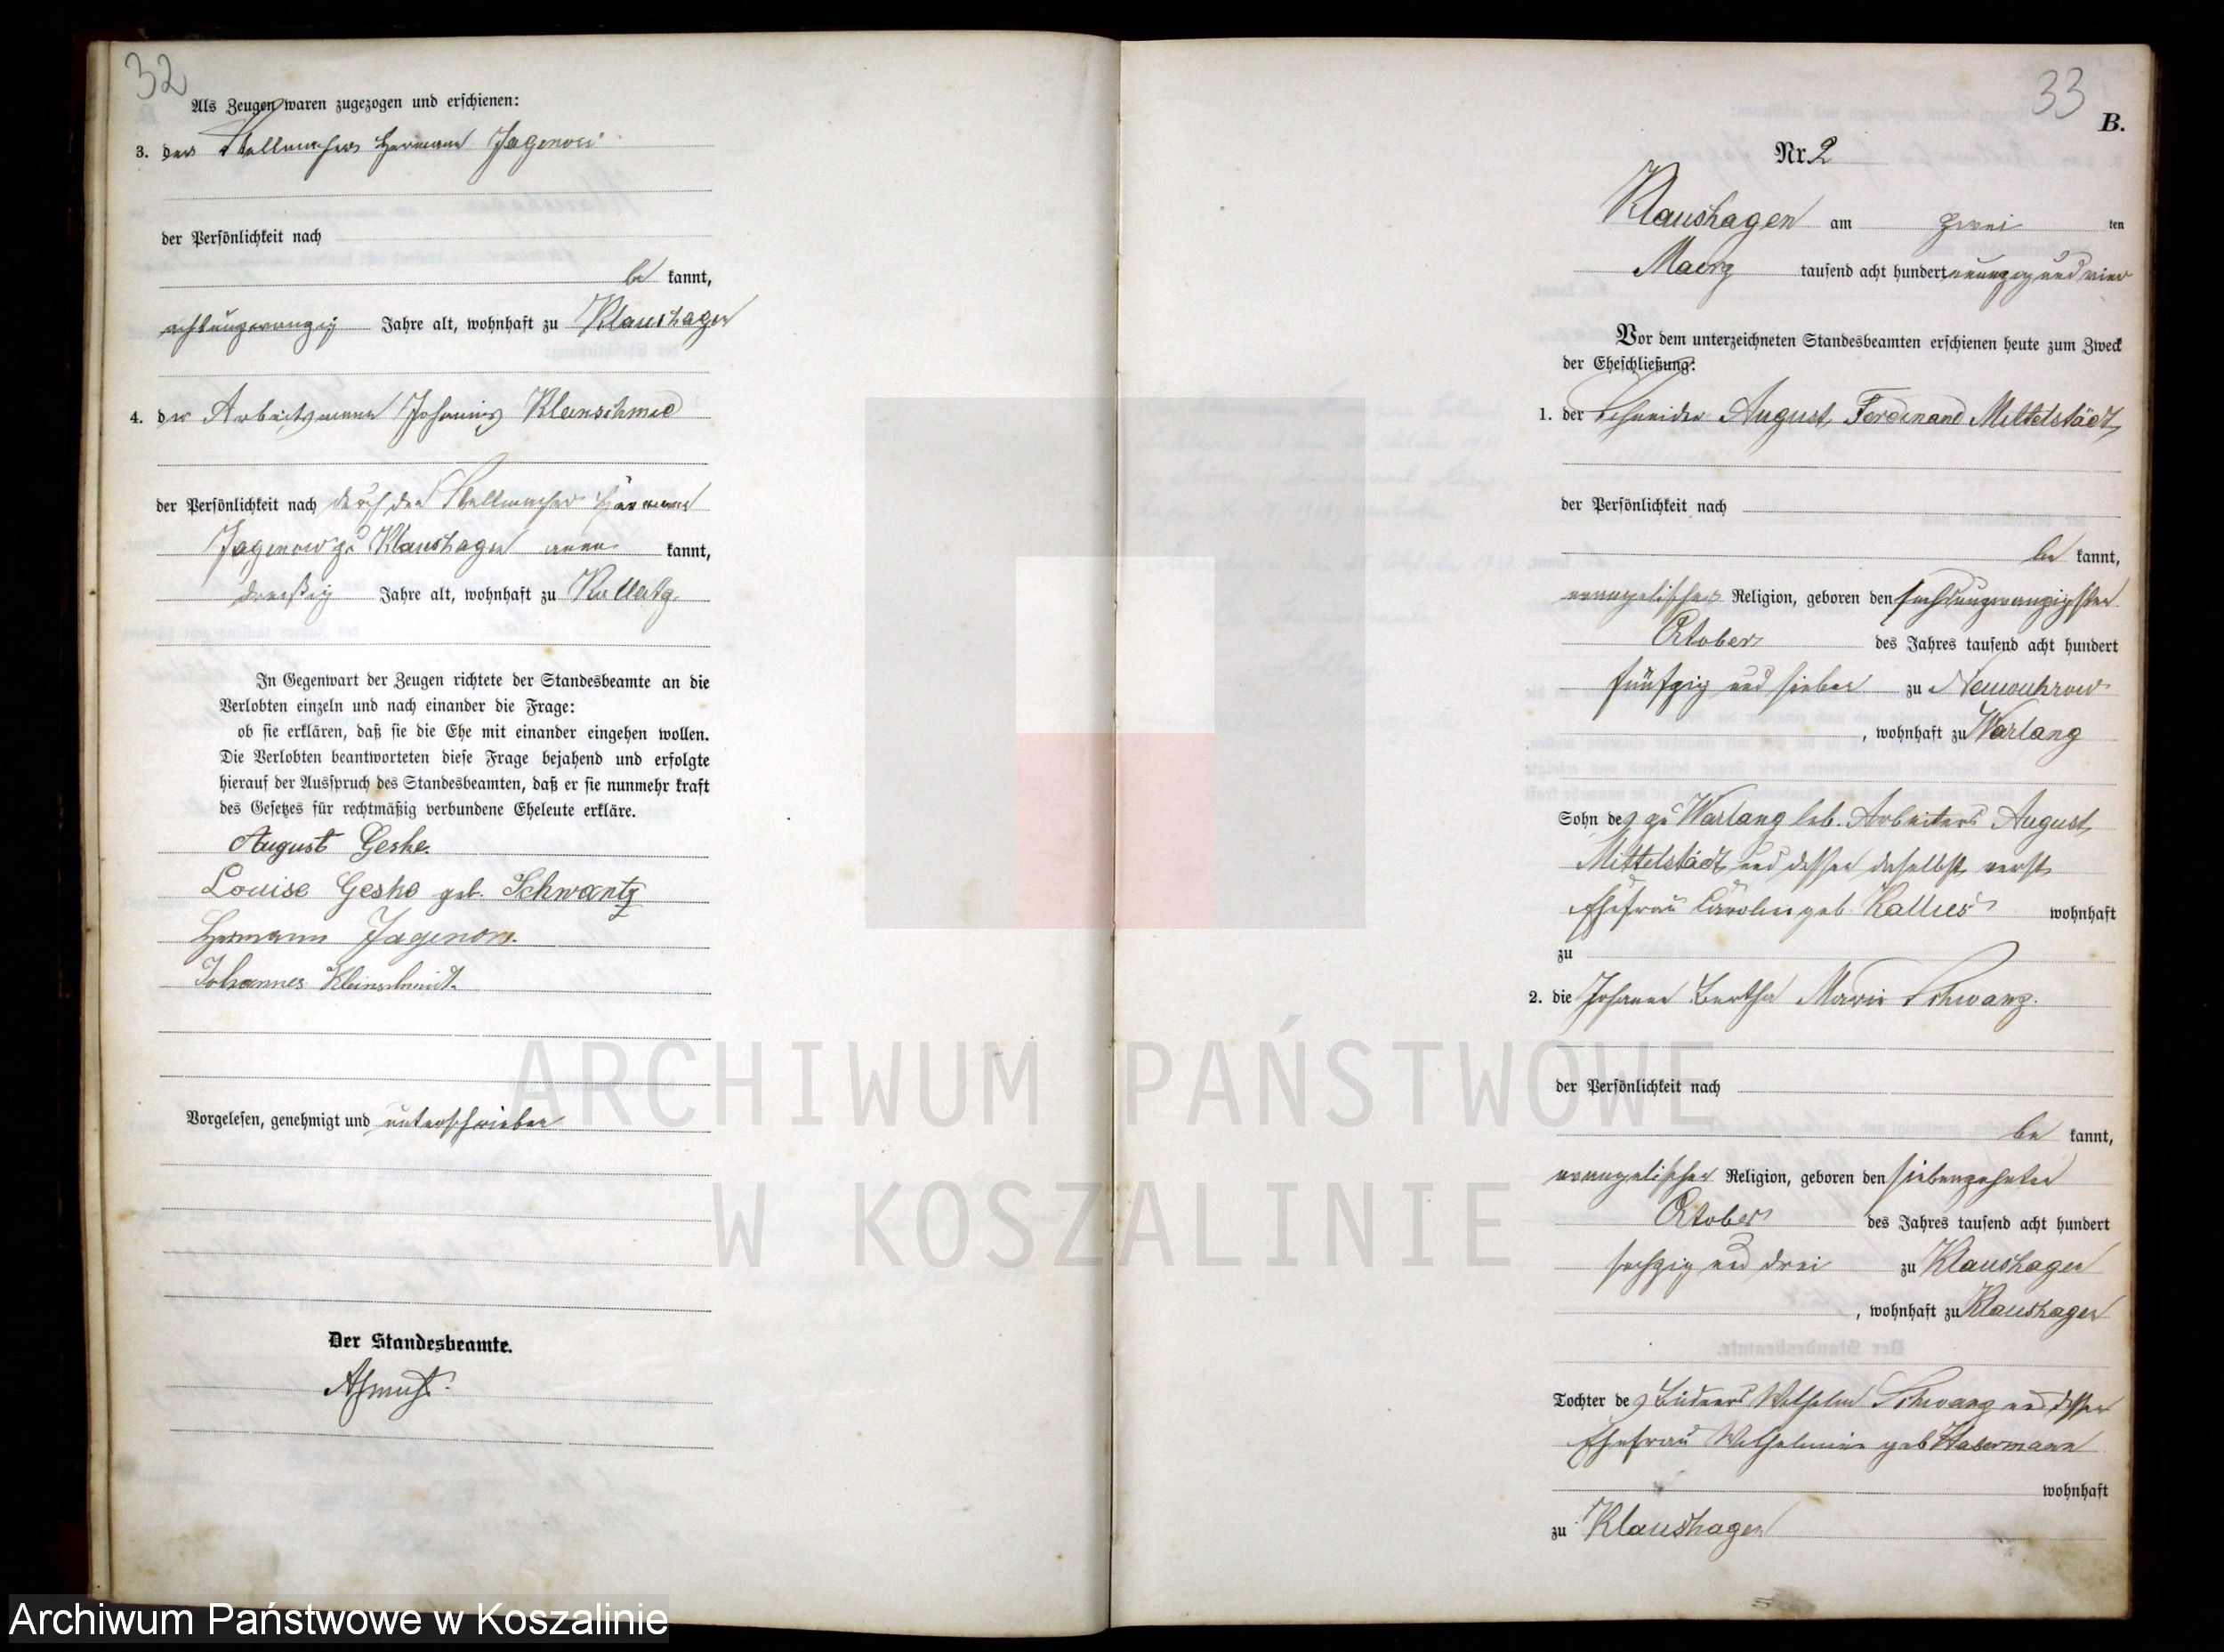 32
Als Zeugen waren zugezogen und erschienen:
3. der Stellmacher Hermann Jagenow
der Persönlichkeit nach
be kannt,
achtundzwanzig Jahre alt, wohnhaft zu Klaushagen
4. der Arbeitsmann Johannes Kleinschmid
der Persönlichkeit nach durch den Stellmacher Hermann
Jagenow zu Klaushagen aner kannt,
dreißig Jahre alt, wohnhaft zu Kollatz
In Gegenwart der Zeugen richtete der Standesbeamte an die
Verlobten einzeln und nach einander die Frage:
ob sie erklären, daß sie die Ehe mit einander eingehen wollen.
Die Verlobten beantworteten diese Frage bejahend und erfolgte
hierauf der Ausspruch des Standesbeamten, daß er sie nunmehr kraft
des Gesetzes für rechtmäßig verbundene Eheleute erkläre.
August Geske.
Louise Geske geb. Schwantz
Hermann Jagenow.
Johannes Kleinschmidt.
Vorgelesen, genehmigt und unterschrieben
Der Standesbeamte.
33
B.
Nr. 2
Klaushagen am zwei ten
Maerz tausend acht hundert neunzig und vier
Vor dem unterzeichneten Standesbeamten erschienen heute zum Zweck
der Eheschließung:
1. der Schneider August Ferdinand Mittelstädt
der Persönlichkeit nach
be kannt,
evangelischer Religion, geboren den sechsundzwanzigsten
October des Jahres tausend acht hundert
fünfzig und sieben zu Neuwuhrow
, wohnhaft zu Warlang
Sohn des zu Warlang leb. Arbeiters August
Mittelstädt und dessen daselbst verst.
Ehefrau Caroline geb. Kallies wohnhaft
zu
2. die Johanne Bertha Marie Schwanz.
der Persönlichkeit nach
be kannt,
evangelischer Religion, geboren den siebenzehnten
October des Jahres tausend acht hundert
sechzig und drei zu Klaushagen
, wohnhaft zu Klaushagen
Tochter des Büdners Wilhelm Schwanz und dessen
Ehefrau Wilhelmine geb Hasermann
wohnhaft
zu Klaushagen
ARCHIWUM PAŃSTWOWE
W KOSZALINIE
Archiwum Państwowe w Koszalinie